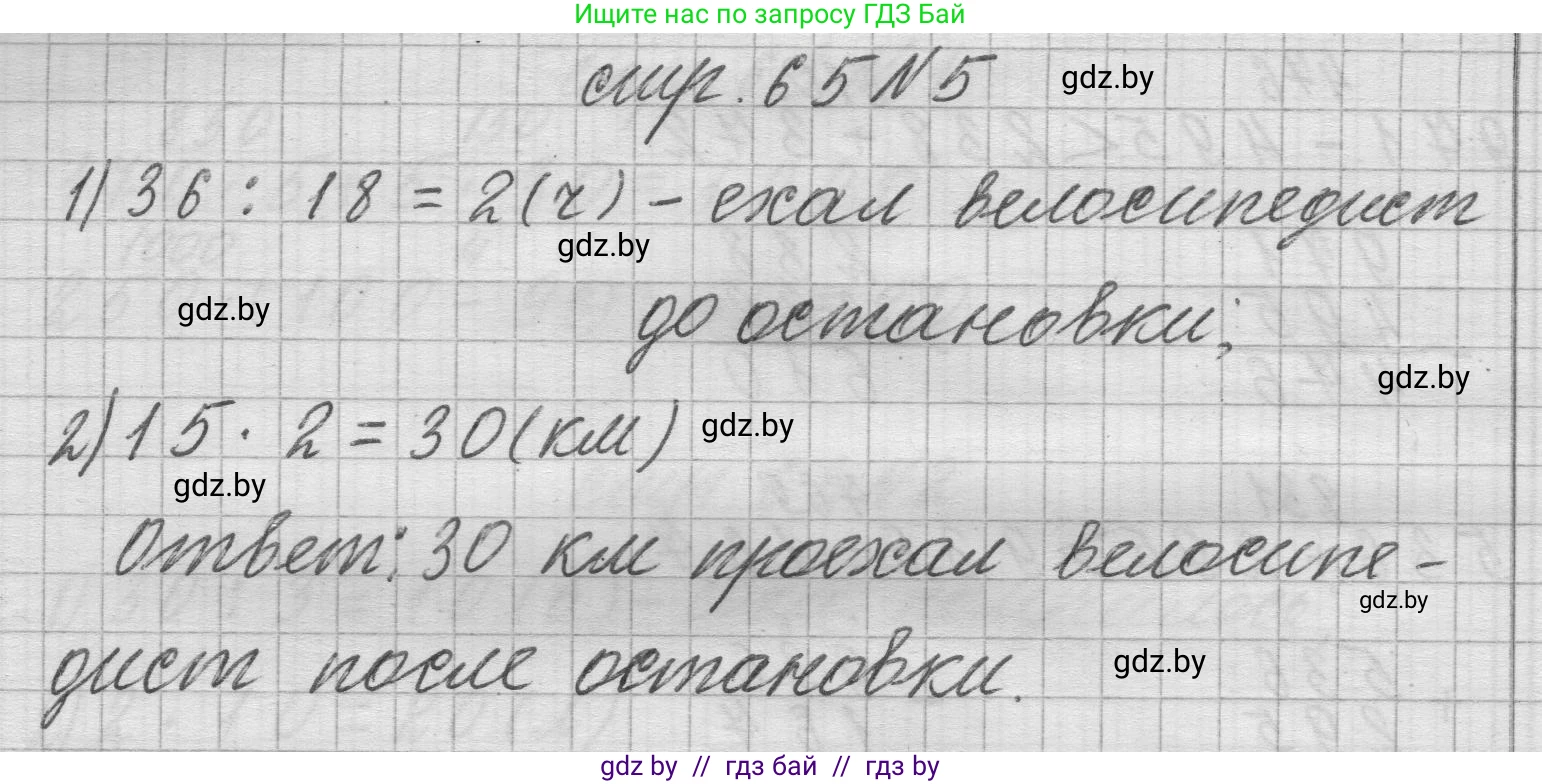 Ищите нас по запросу ГДЗ Бай
стр. 65 N 5 gdz.by
1) 36 : 18 = 2 (ч) - ехал велосипедист
gdz.by
gdz.by до остановки;
gdz.by
2) 15 · 2 = 30 (км) gdz.by
gdz.by
Ответ: 30 км проехал велосипе-
gdz.by
дист после остановки. gdz.by
gdz by // гдз бай // гдз by